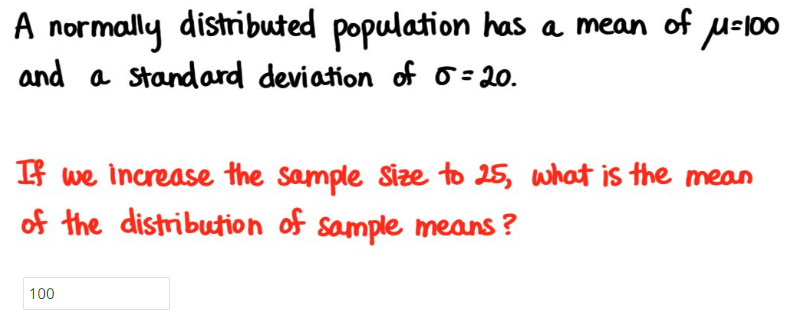 A normally distributed population has a mean of μ=100
and a standard deviation of σ = 20.
If we increase the sample size to 25, what is the mean
of the distribution of sample means?
100